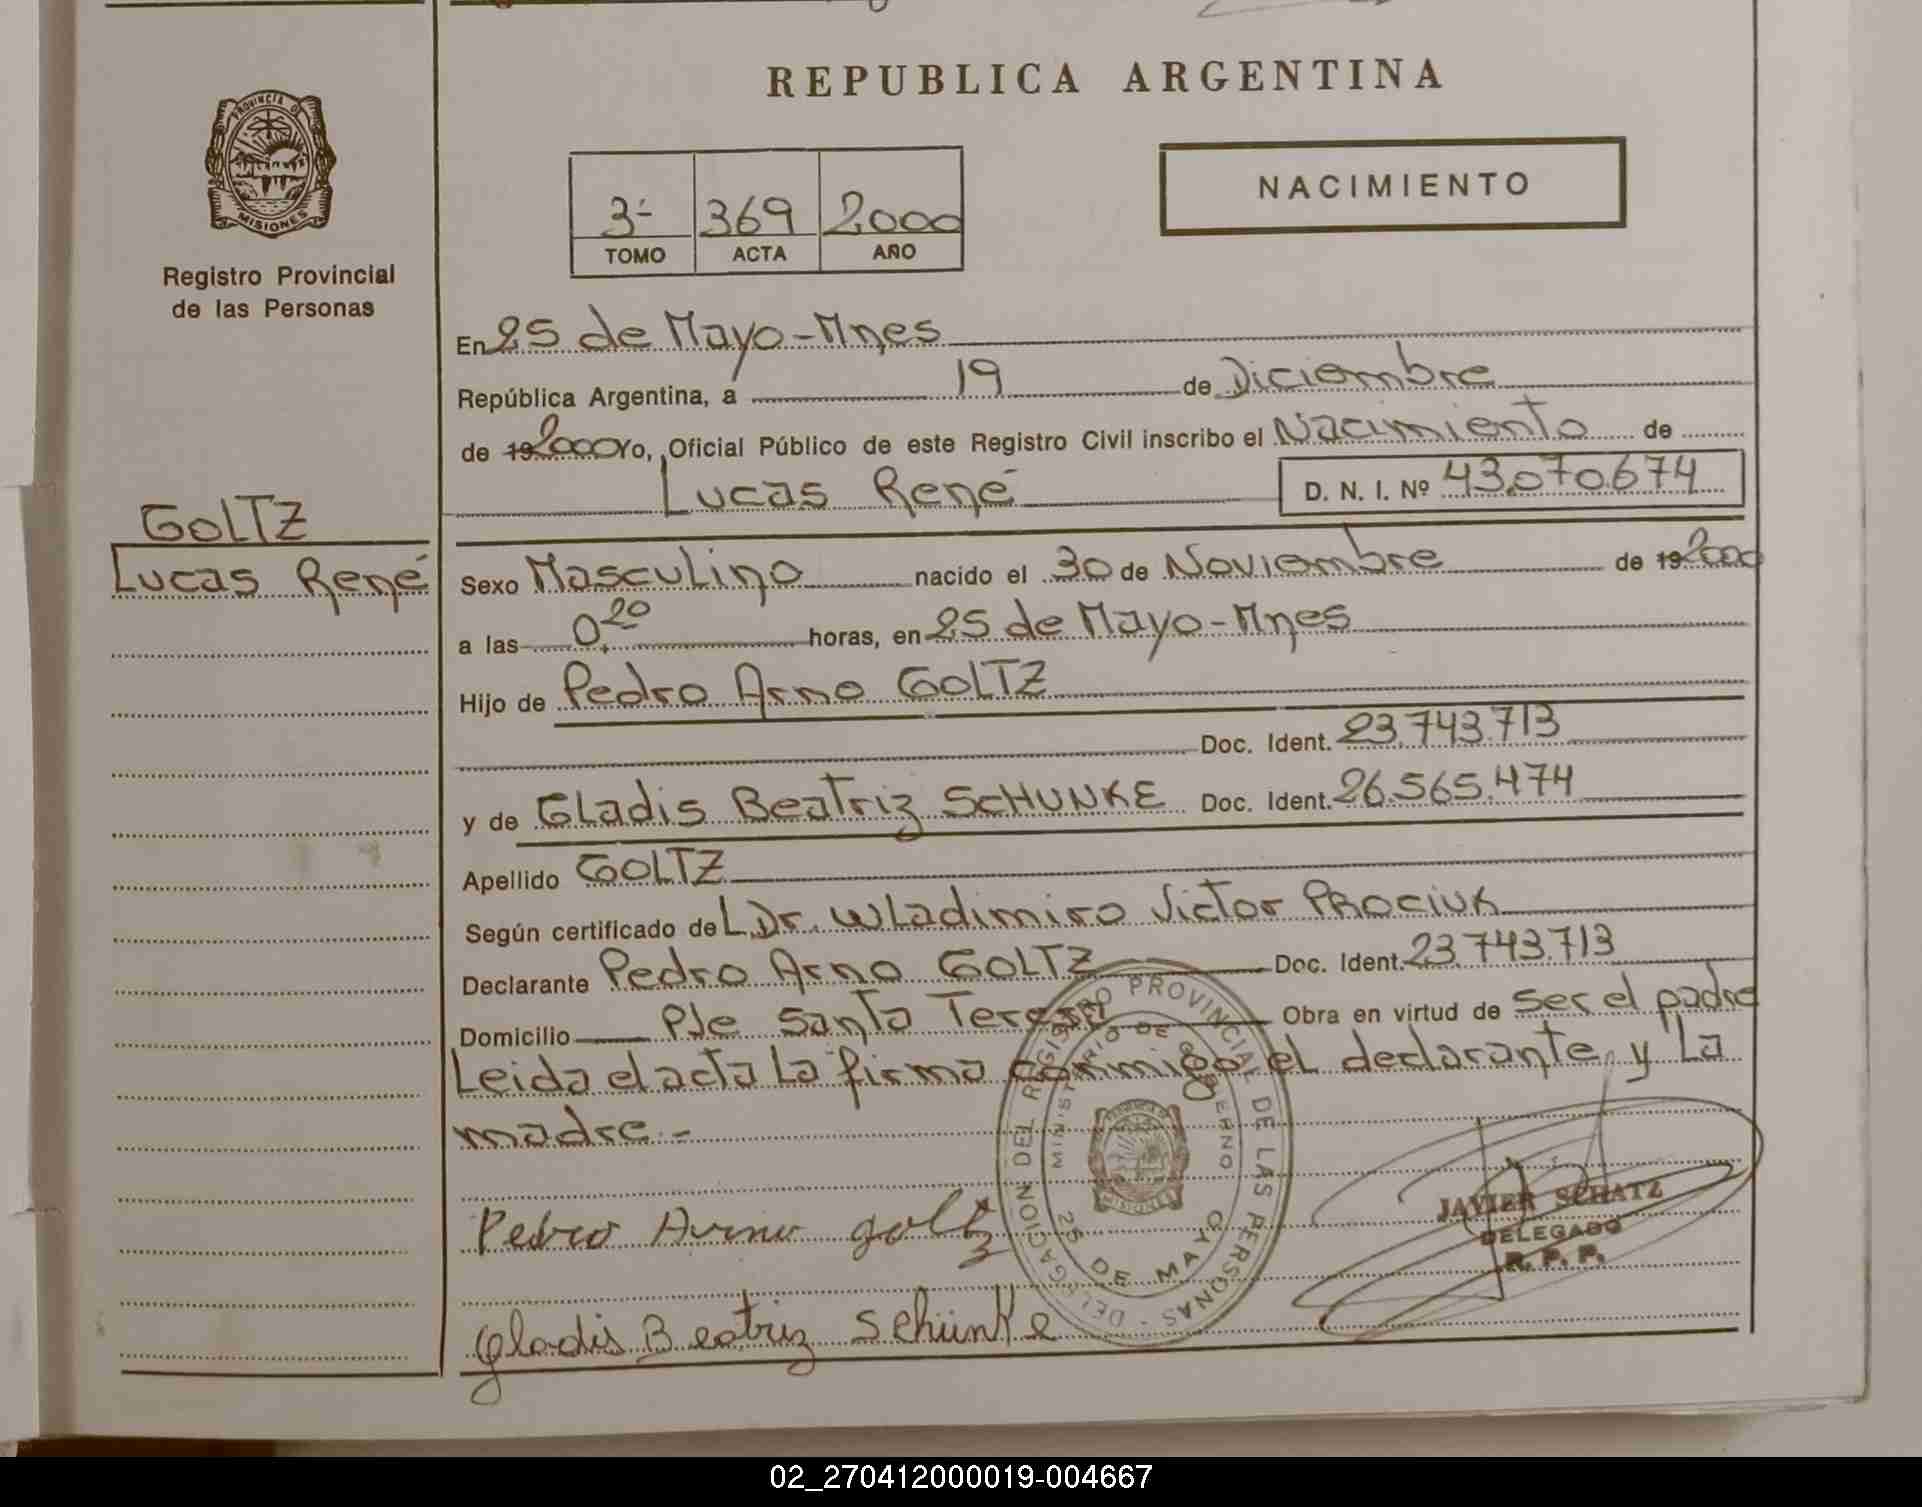 REPUBLICA ARGENTINA
PROVINCIA DE
MISIONES
Registro Provincial
de las Personas
3- 369 2000
TOMO ACTA AÑO
NACIMIENTO
En 25 de Mayo-Mnes
República Argentina, a 19 de Diciembre
de 19 2000 Yo, Oficial Público de este Registro Civil inscribo el Nacimiento de
Lucas René D. N. I. Nº 43.070.674
GOLTZ
Lucas René
Sexo Masculino nacido el 30 de Noviembre de 19 2000
a las 0,20 horas, en 25 de Mayo-Mnes
Hijo de Pedro Arno GOLTZ
Doc. Ident. 23.743.713
y de Gladis Beatriz SCHUNKE Doc. Ident. 26.565.474
Apellido GOLTZ
Según certificado del Dr. Wladimiro Victor PROCIUK
Declarante Pedro Arno GOLTZ Doc. Ident. 23.743.713
Domicilio Pje Santa Teresa Obra en virtud de ser el padre
Leida el acta la firma conmigo el declarante y la
madre.-
DELEGACION DEL REGISTRO PROVINCIAL DE LAS PERSONAS -
MINISTERIO DE GOBIERNO
25 DE MAYO
Pedro Arno goltz
JAVIER SCHATZ
DELEGADO
R. P. P.
Gladis Beatriz Schünke
02_270412000019-004667